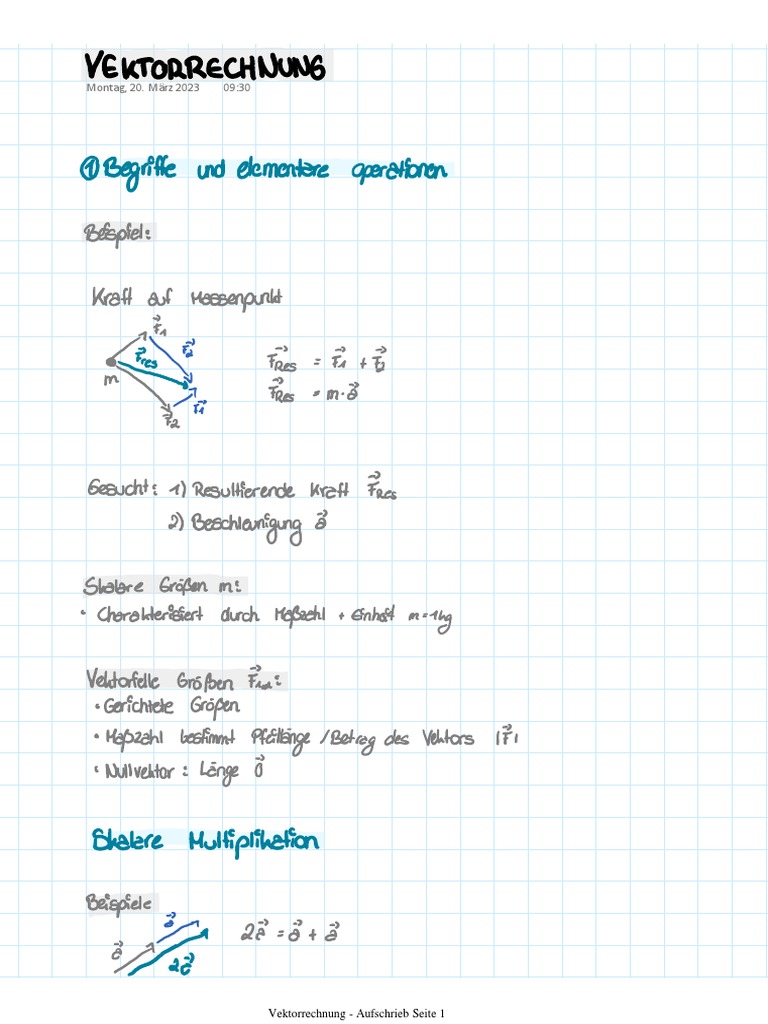 VEKTORRECHNUNG
Montag, 20. März 2023 09:30
① Begriffe und elementare operationen
Beispiel:
Kraft auf Massenpunkt
F⃗1
F⃗2
F⃗res
m
F⃗2
F⃗1
F⃗Res = F⃗1 + F⃗2
F⃗Res = m · a⃗
Gesucht: 1) Resultierende Kraft F⃗Res
2) Beschleunigung a⃗
Skalare Größen m:
• Charakterisiert durch Maßzahl + Einheit m = 1kg
Vektorielle Größen
• Gerichtete Größen
• Maßzahl bestimmt Pfeillänge / Betrag des Vektors |F⃗|
• Nullvektor: Länge 0⃗
Skalare Multiplikation
Beispiele
a⃗
a⃗
2a⃗
2a⃗ = a⃗ + a⃗
Vektorrechnung - Aufschrieb Seite 1